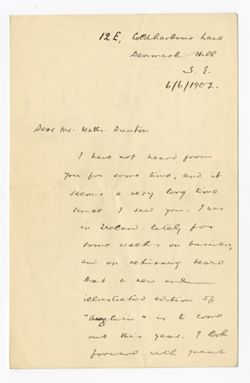 12E, Coldharbour Lane
Denmark Hill
S. E.
6/6/1902.
Dear Mr. Watts-Dunton
I have not heard from
you for some time, and it
seems a very long time
since I saw you. I was
in Ireland lately for
some weeks on business,
and on returning heard
that a new and
illustrated edition of
"Aylwin" is to come
out this year. I look
forward with great